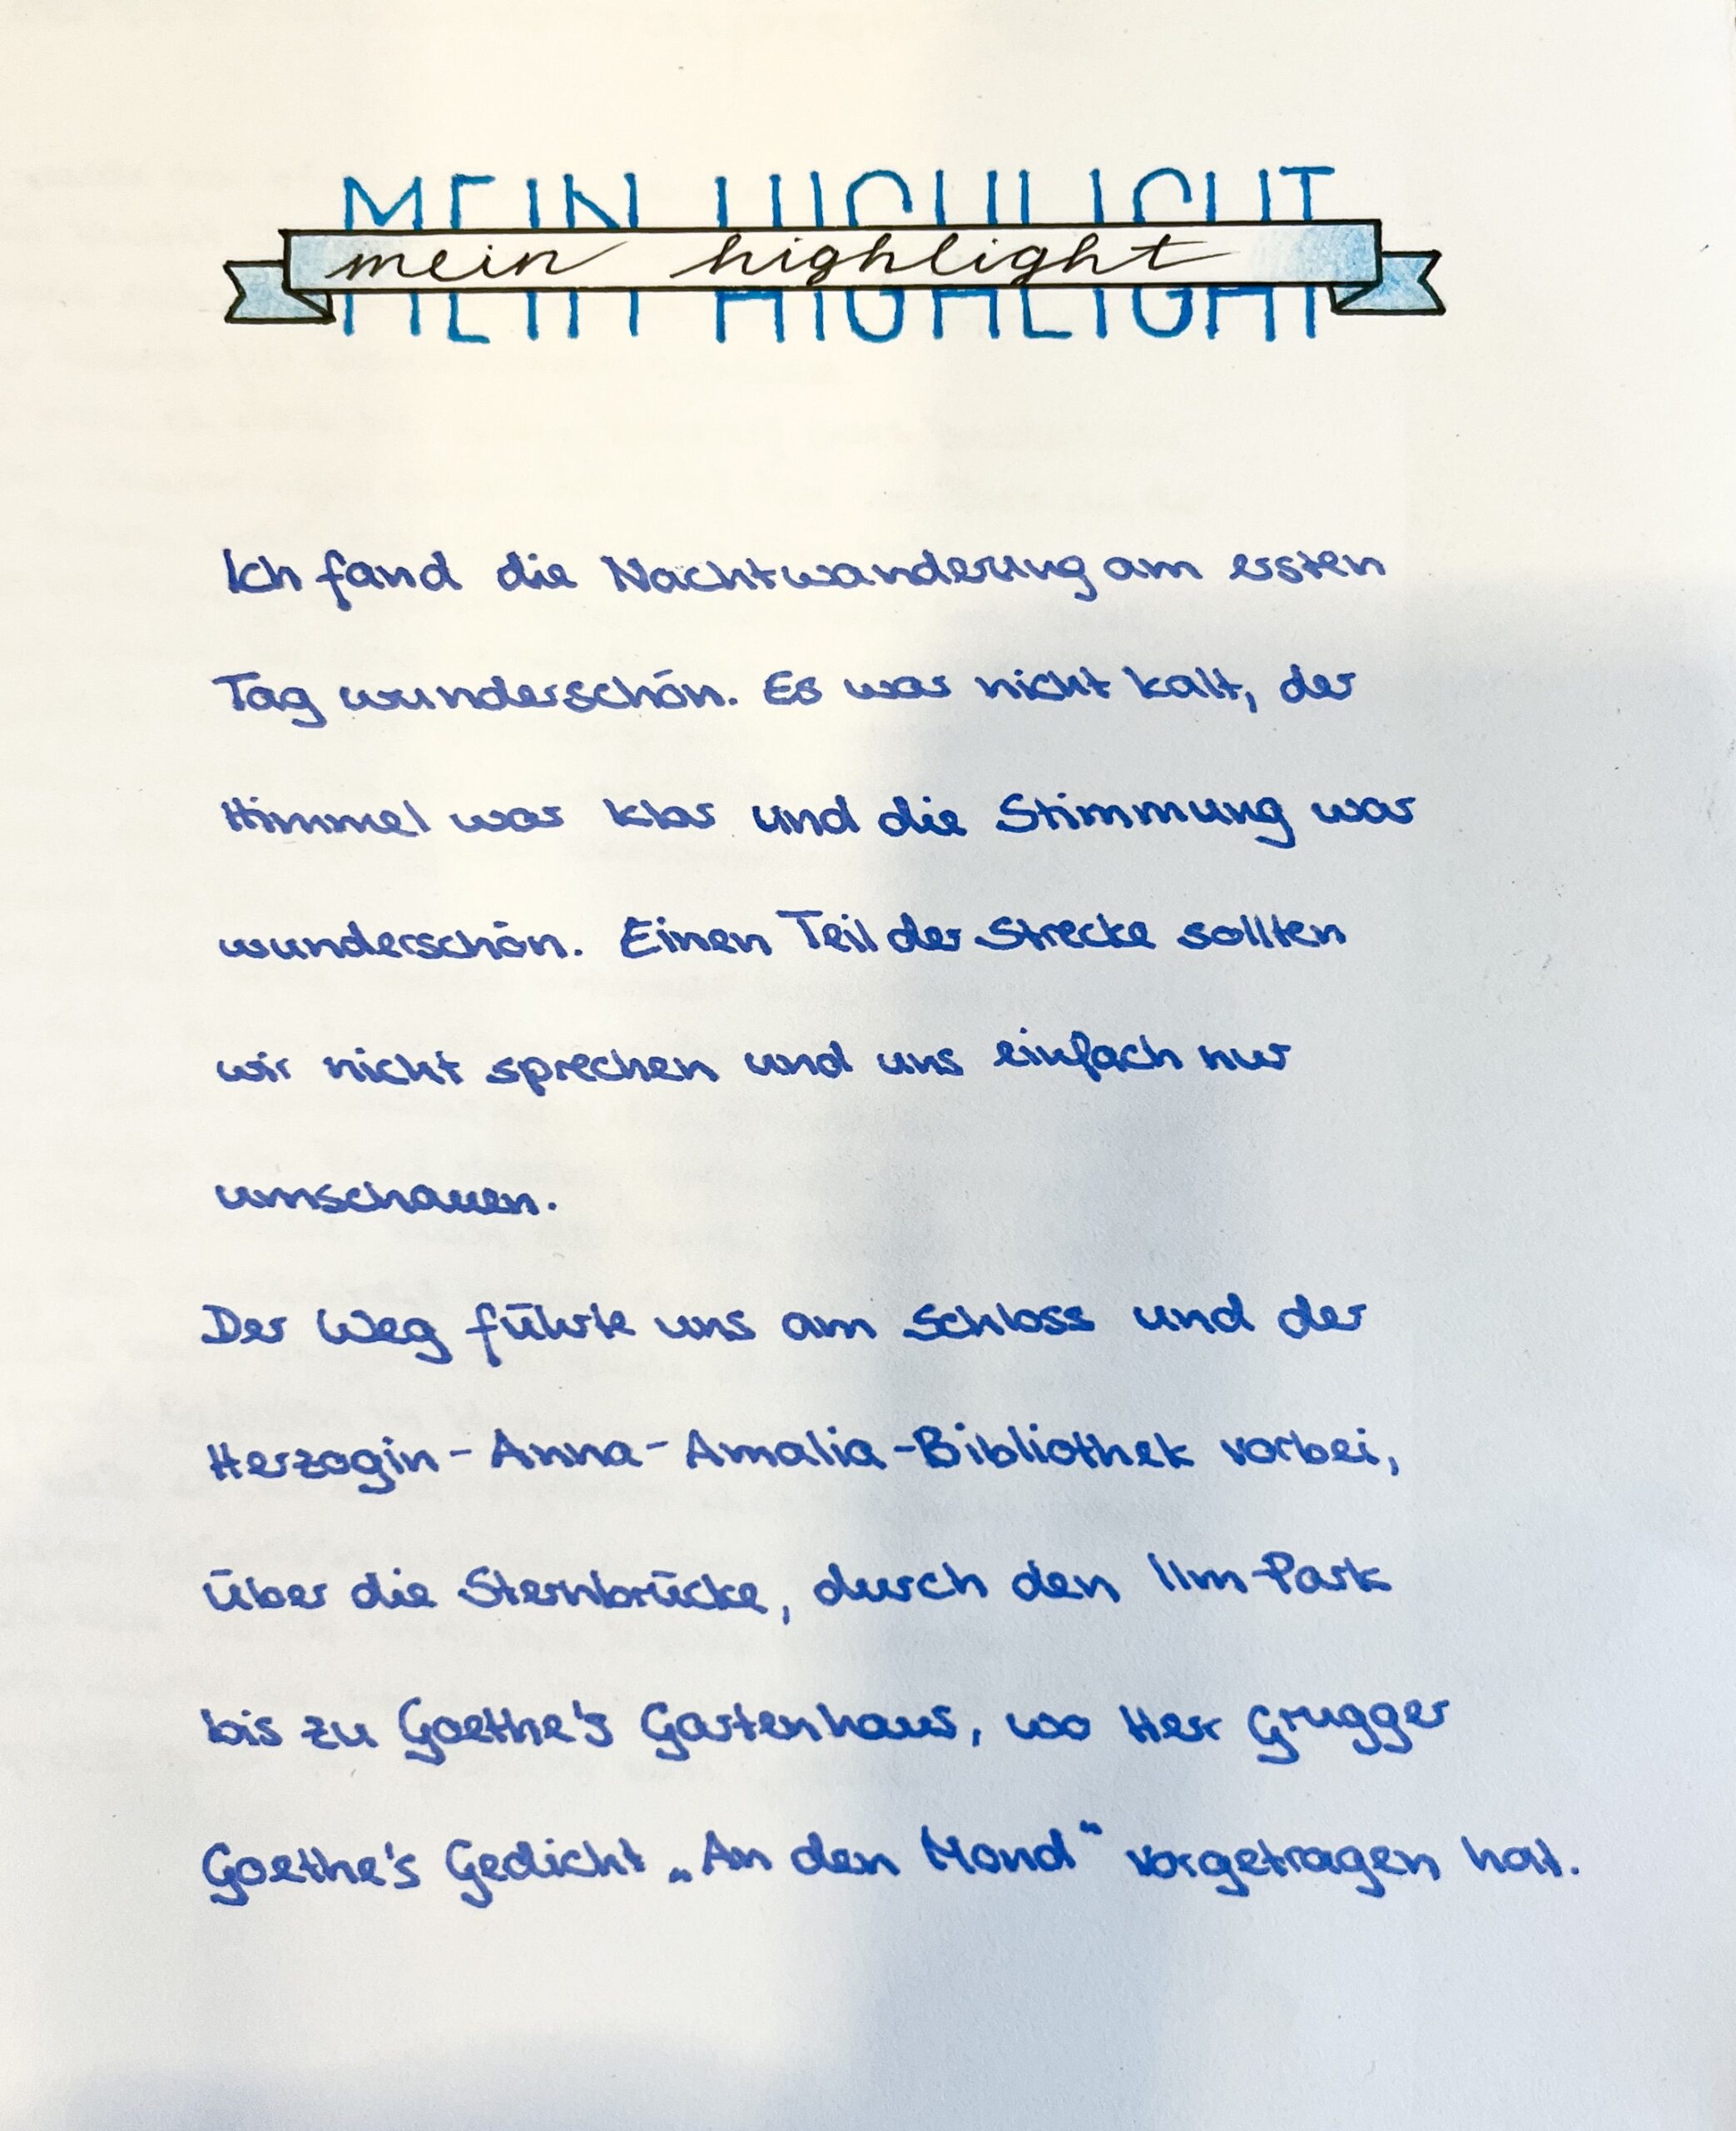 MEIN HIGHLIGHT
mein highlight
Ich fand die Nachtwanderung am ersten
Tag wunderschön. Es war nicht kalt, der
Himmel war klar und die Stimmung war
wunderschön. Einen Teil der Strecke sollten
wir nicht sprechen und uns einfach nur
umschauen.
Der Weg führte uns am Schloss und der
Herzogin-Anna-Amalia-Bibliothek vorbei,
über die Sternbrücke, durch den Ilm-Park
bis zu Goethe's Gartenhaus, wo Herr Grugger
Goethe's Gedicht „An den Mond" vorgetragen hat.